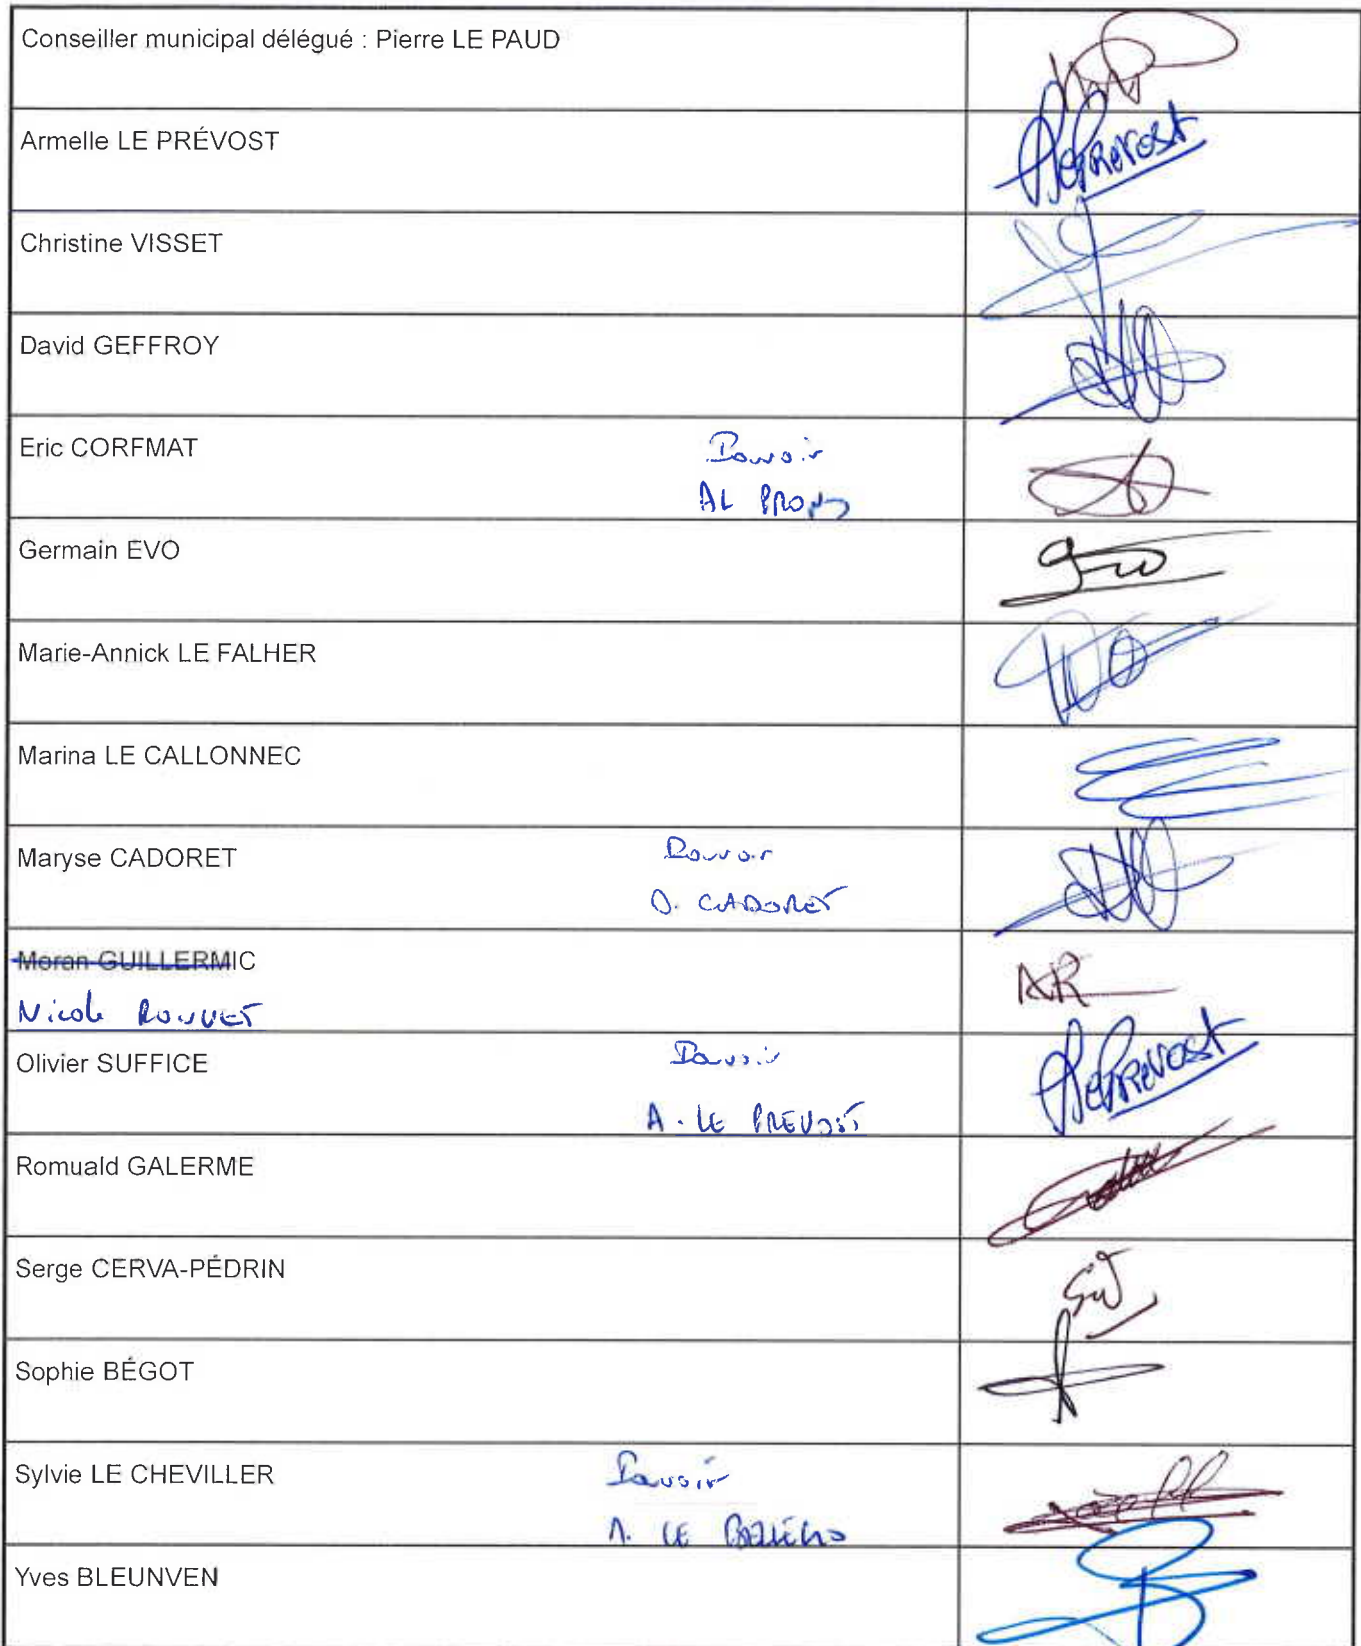 Conseiller municipal délégué : Pierre LE PAUD
Armelle LE PRÉVOST
LePrevost
Christine VISSET
David GEFFROY
Eric CORFMAT
Pouvoir
AL
Germain EVO
Marie-Annick LE FALHER
Marina LE CALLONNEC
Maryse CADORET
Pouvoir
D. CADORET
Moran GUILLERMIC
AR
Nicole
Olivier SUFFICE
Pouvoir
LePrevost
A. LE PREVOST
Romuald GALERME
Serge CERVA-PÉDRIN
Sophie BÉGOT
Sylvie LE CHEVILLER
Pouvoir
LE
Yves BLEUNVEN